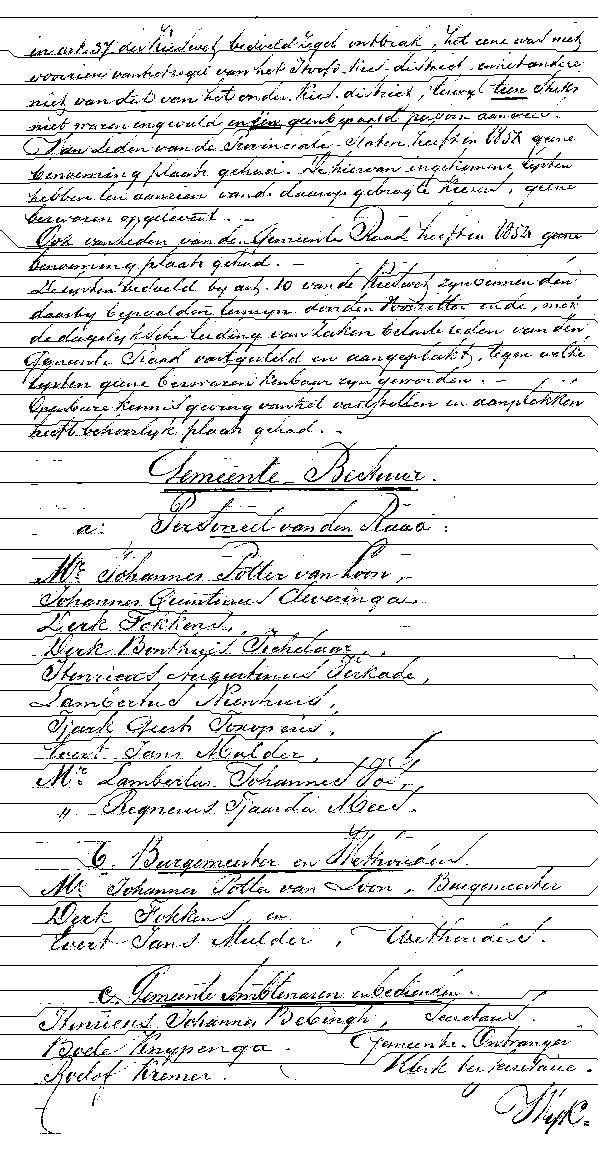 in art. 37 der Kieswet bedoeld zegel ontbrak, het eene was niet
voorzien van het zegel van het Hoofd-Kies-district en het andere
niet van dat van het onder Kies district, terwyl tien stuks
niet waren ingevuld en een geen bepaald persoon aanwees.
Van Leden van de Provinciale Staten heeft in 1852 geene
benoeming plaats gehad. De hiervan ingekomene lysten
hebben ten aanzien van de daarop gebragte Kiezers, geene
bezwaren opgeleverd. -
Ook van leden van den Gemeente Raad heeft in 1852 geene
benoeming plaats gehad. -
De lysten bedoeld by art. 10 van de Kieswet zyn binnen den
daarby bepaalden termyn door den Voorzitter en de, met
de dagelyksche leiding van zaken belaste leden van den
Gemeente Raad vastgesteld en aangeplakt, tegen welke
lysten geene bezwaren kenbaar zyn geworden. -
Openbare kennisgeving van het vaststellen en aanplakken
heeft behoorlyk plaats gehad. -
Gemeente-Bestuur.
a: Personeel van den Raad:
Mr. Johannes Polter van Loon,
Johannes Quintinus Cleveringa,
Derk Fokkens,
Derk Bonthuis Tichelaar,
Henricus Augustinus Verkade,
Lambertus Nienhuis,
Tjark Geerts
Evert Jans Mulder,
Mr. Lambertus Johannes
" Regnerus Tjaarda Mees.
b. Burgemeester en Wethouders.
Mr. Johannes Polter van Loon, Burgemeester
Derk Fokkens en
Evert Jans Mulder, Wethouders.
c. Gemeente Ambtenaren en bedienden.
Henricus Johannes Bebingh, Secretaris.
Bode Knypenga. Gemeente-Ontvanger
Roelof Kremer. Klerk ter Secretarie.